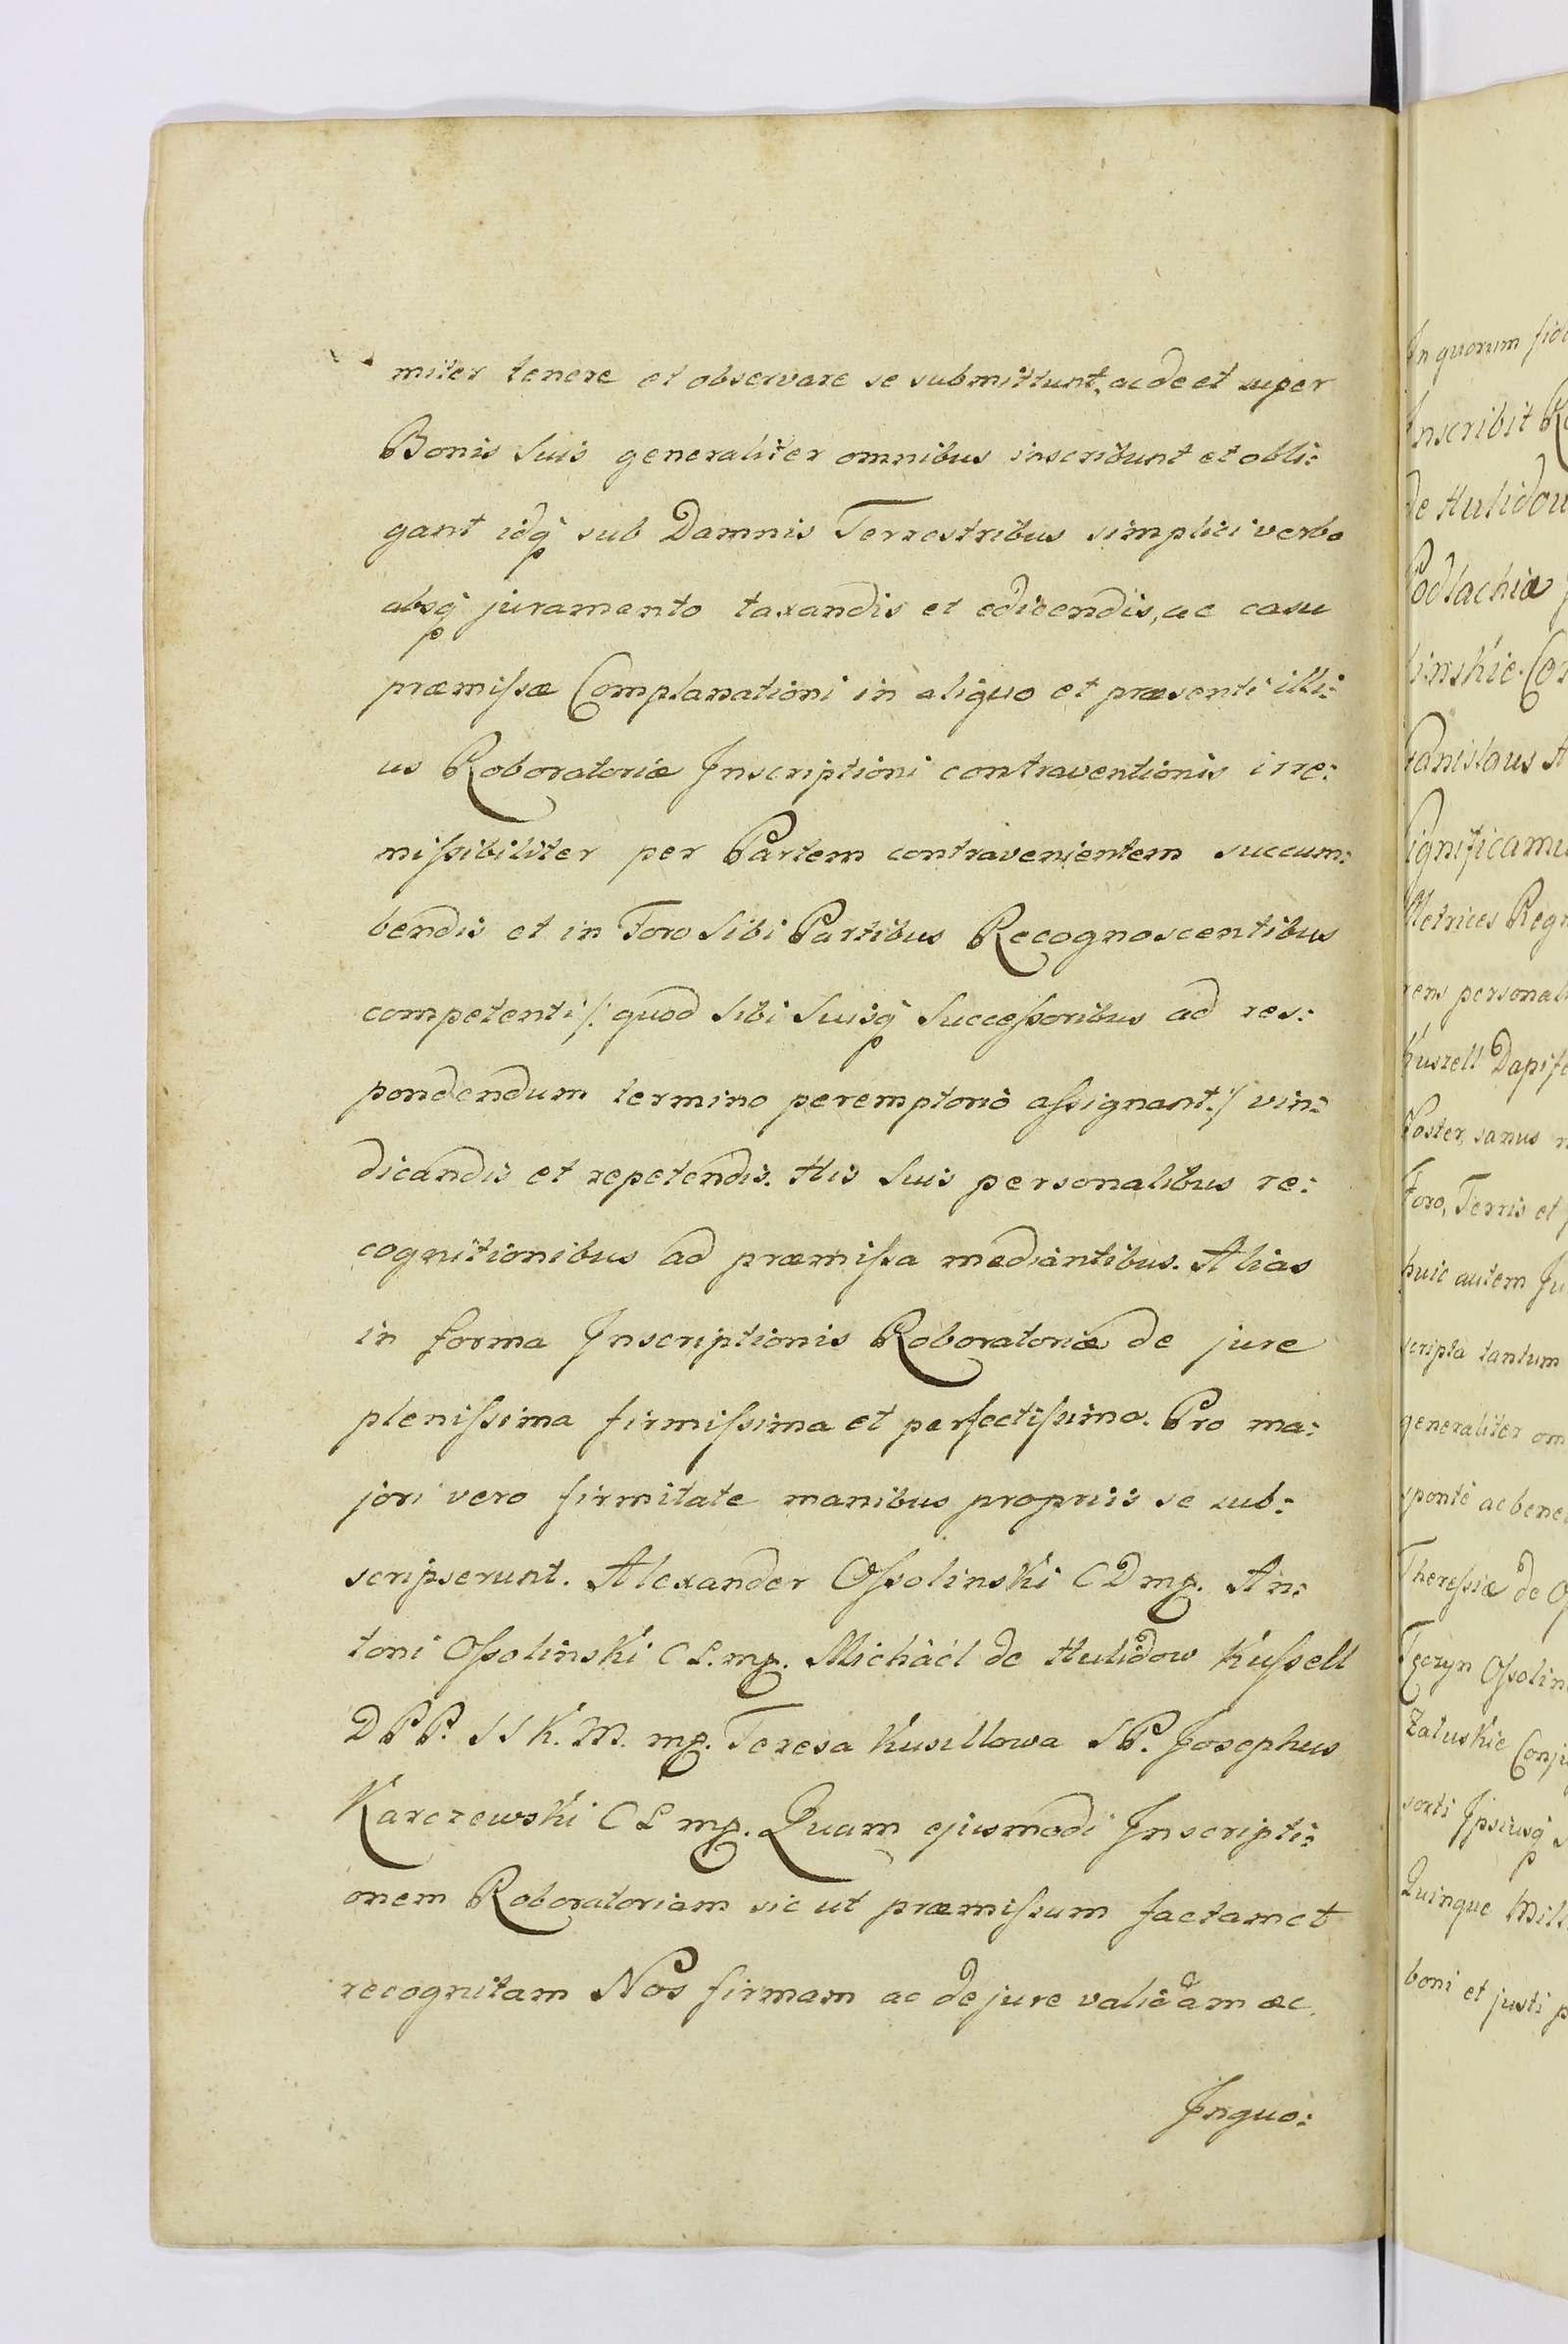 miter tenere et observare se submittunt, ac de et super
Bonis Suis generaliter omnibus inscribunt et obli:
gant idq̃ sub Damnis Terrestribus simplici verbo
absq̃ juramento taxandis et edicendis, ac casu
præmiſsæ Complanationi in aliquo et præsenti illi:
us Roboratoriæ Inscriptioni contraventionis irre:
miſsibiliter per Partem contravenientem succum:
bendis et in Foro Sibi Partibus Recognoscentibus
competenti /: quod Sibi Suisq̃ Succeſsoribus ad res:
pondendum termino peremptoriò aſsignant :/ vin:
dicandis et repetendis. His Suis personalibus re:
cognitionibus ad præmiſsa mediantibus. Alias
in forma Inscriptionis Roboratoriæ de jure
pleniſsima firmiſsima et perfectiſsima. Pro ma:
jori vero firmitate manibus propriis se sub:
scripserunt. Alexander Oſsolinski C D mp. An:
toni Oſsolinski C L. mp. Michàél de Hulidow Kuſsell
D P P. S S K. M. mp. Teresa Kusillowa S P. Josephus
Karczewski C L mp. Quam ejusmodi Inscripti:
onem Roboratoriam sic ut præmiſsum factam et
recognitam Nos firmam ac de jure validam ac.
Inquo:
In quorum fid
Inscribit
de Hulidow
Podlachiæ
linskie. Con
Stanislaus A
Significamu
Metrices Reg
rens personali
Kuszell Dapife
Noster, sanus
Foro, Terris et
huic autem
scripta tantum
generaliter om
sponte ac bene
Theresiæ de O
Tęczyn Oſsolin
Załuskie Conju
sorti Ipsiusq̃
Quinque Mill
boni et justi p